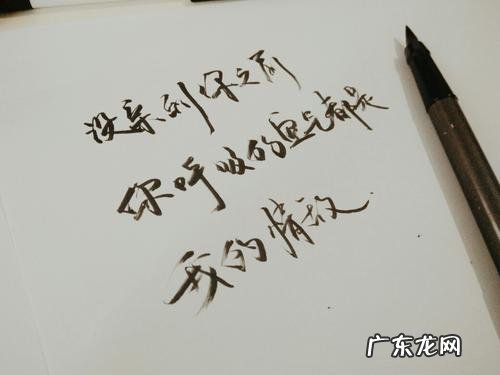 没亲到你之前
你呼吸的空气都是
我的情敌
广东龙网